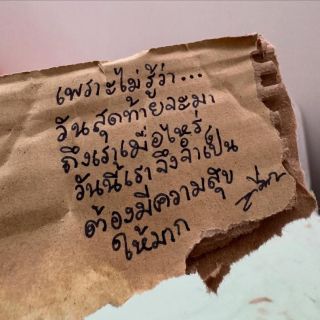 เพราะไม่รู้ว่า...
วันสุดท้ายจะมา
ถึงเราเมื่อไหร่
วันนี้เราจึงจำเป็น
ต้องมีความสุข
ให้มาก